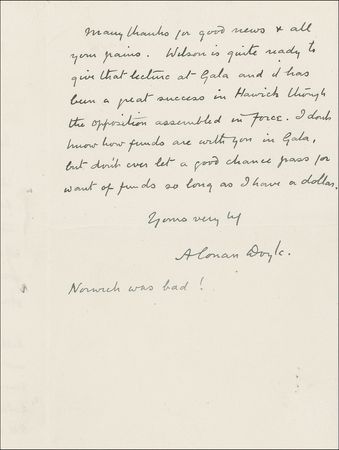 Many thanks for good news & all
your pains. Wilson is quite ready to
give that lecture at Gala and it has
been a great success in Hawick though
the opposition assembled in force. I don't
know how funds are with you in Gala,
but don't ever let a good chance pass for
want of funds so long as I have a dollar.
Yours very ty
A Conan Doyle.
Norwich was bad!